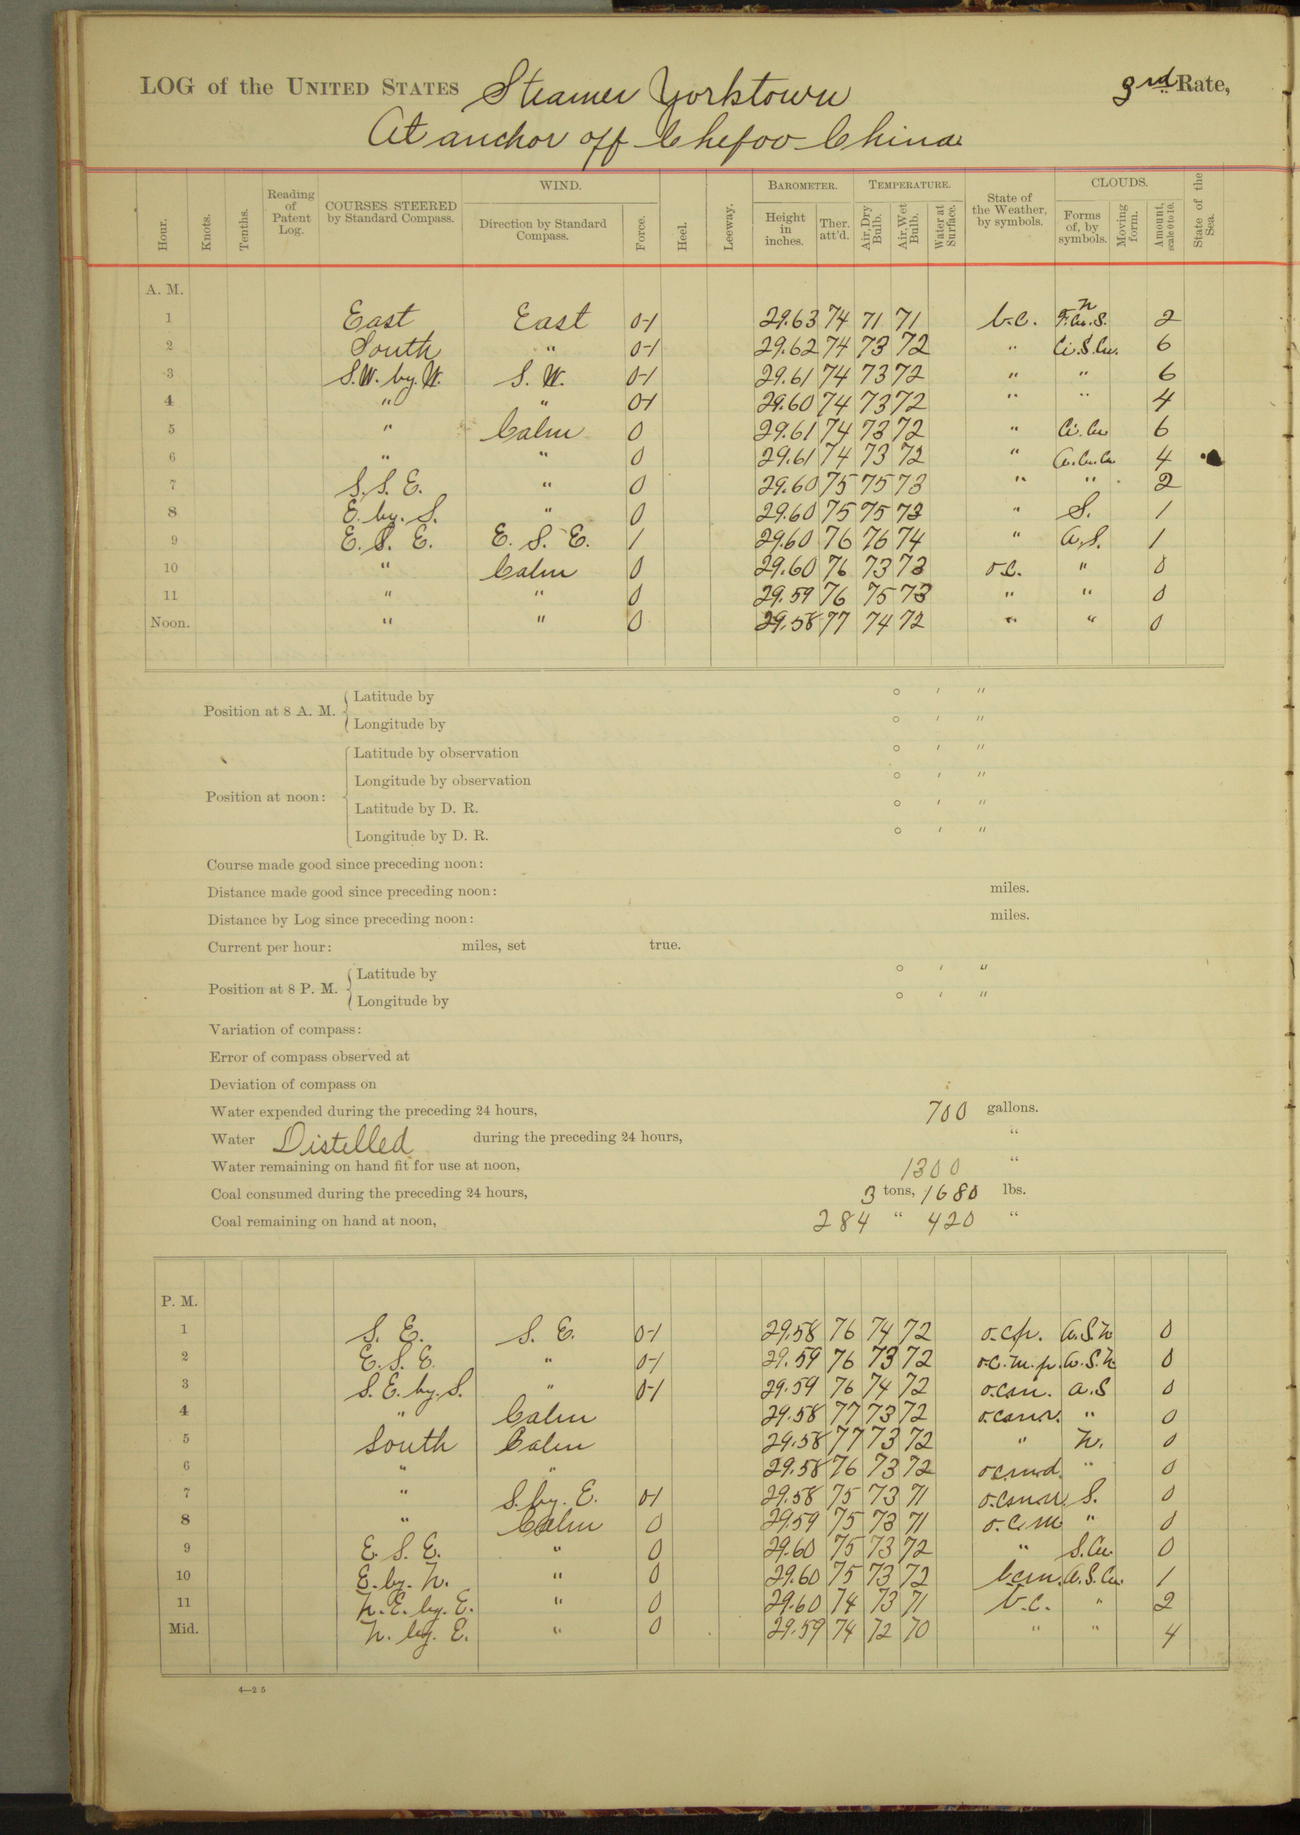 LOG of the UNITED STATES Steamer Yorktown 3rd Rate,
At anchor off Chefoo China
Hour. Knots. Tenths. Reading of Patent Log. COURSES STEERED by Standard Compass. WIND. Direction by Standard Compass. Force. Heel. Leeway. BAROMETER. Height in inches. Ther. att'd. TEMPERATURE. Air, Dry Bulb. Air, Wet Bulb. Water at Surface. State of the Weather, by symbols. CLOUDS. Forms of, by symbols. Moving form. Amount, scale 0 to 10. State of the Sea.
A. M.
1 East East 0-1 29.63 74 71 71 b.c. 2
2 South " 0-1 29.62 74 73 72 " Ci.S.Cu. 6
3 S.W. by W. S. W. 0-1 29.61 74 73 72 " " 6
4 " " 0-1 29.60 74 73 72 " " 4
5 " Calm 0 29.61 74 73 72 " Ci.Cu 6
6 " " 0 29.61 74 73 72 " 4
7 S.S.E. " 0 29.60 75 75 73 " " 2
8 E. by. S. " 0 29.60 75 75 73 " S. 1
9 E. S. E. E. S. E. 1 29.60 76 76 74 " a.S. 1
10 " Calm 0 29.60 76 73 73 o.c. " 0
11 " " 0 29.59 76 75 73 " " 0
Noon. " " 0 29.58 77 74 72 " " 0
Position at 8 A. M. Latitude by ° ′ ″
Longitude by ° ′ ″
Position at noon: Latitude by observation ° ′ ″
Longitude by observation ° ′ ″
Latitude by D. R. ° ′ ″
Longitude by D. R. ° ′ ″
Course made good since preceding noon:
Distance made good since preceding noon: miles.
Distance by Log since preceding noon: miles.
Current per hour: miles, set true.
Position at 8 P. M. Latitude by ° ′ ″
Longitude by ° ′ ″
Variation of compass:
Error of compass observed at
Deviation of compass on
Water expended during the preceding 24 hours, 700 gallons.
Water Distilled during the preceding 24 hours, "
Water remaining on hand fit for use at noon, 1300 "
Coal consumed during the preceding 24 hours, 3 tons, 1680 lbs.
Coal remaining on hand at noon, 284 " 420 "
P. M.
1 S. E. S. E. 0-1 29.58 76 74 72 o.c.p. a.S.N 0
2 E. S. E. " 0-1 29.59 76 73 72 o.c.m.p. a.S.N 0
3 S. E. by. S. " 0-1 29.59 76 74 72 a.S 0
4 " Calm 29.58 77 73 72 " 0
5 South Calm 29.58 77 73 72 " N. 0
6 " " 29.58 76 73 72 o.c.m.d. " 0
7 " S. by. E. 0-1 29.58 75 73 71 S. 0
8 " Calm 0 29.59 75 73 71 o.c.m " 0
9 E. S. E. " 0 29.60 75 73 72 " S.Cu. 0
10 E. by. N. " 0 29.60 75 73 72 b.c.m. a.S.Cu. 1
11 N. E. by. E. " 0 29.60 74 73 71 b.c. " 2
Mid. N. by. E. " 0 29.59 74 72 70 " " 4
4—25